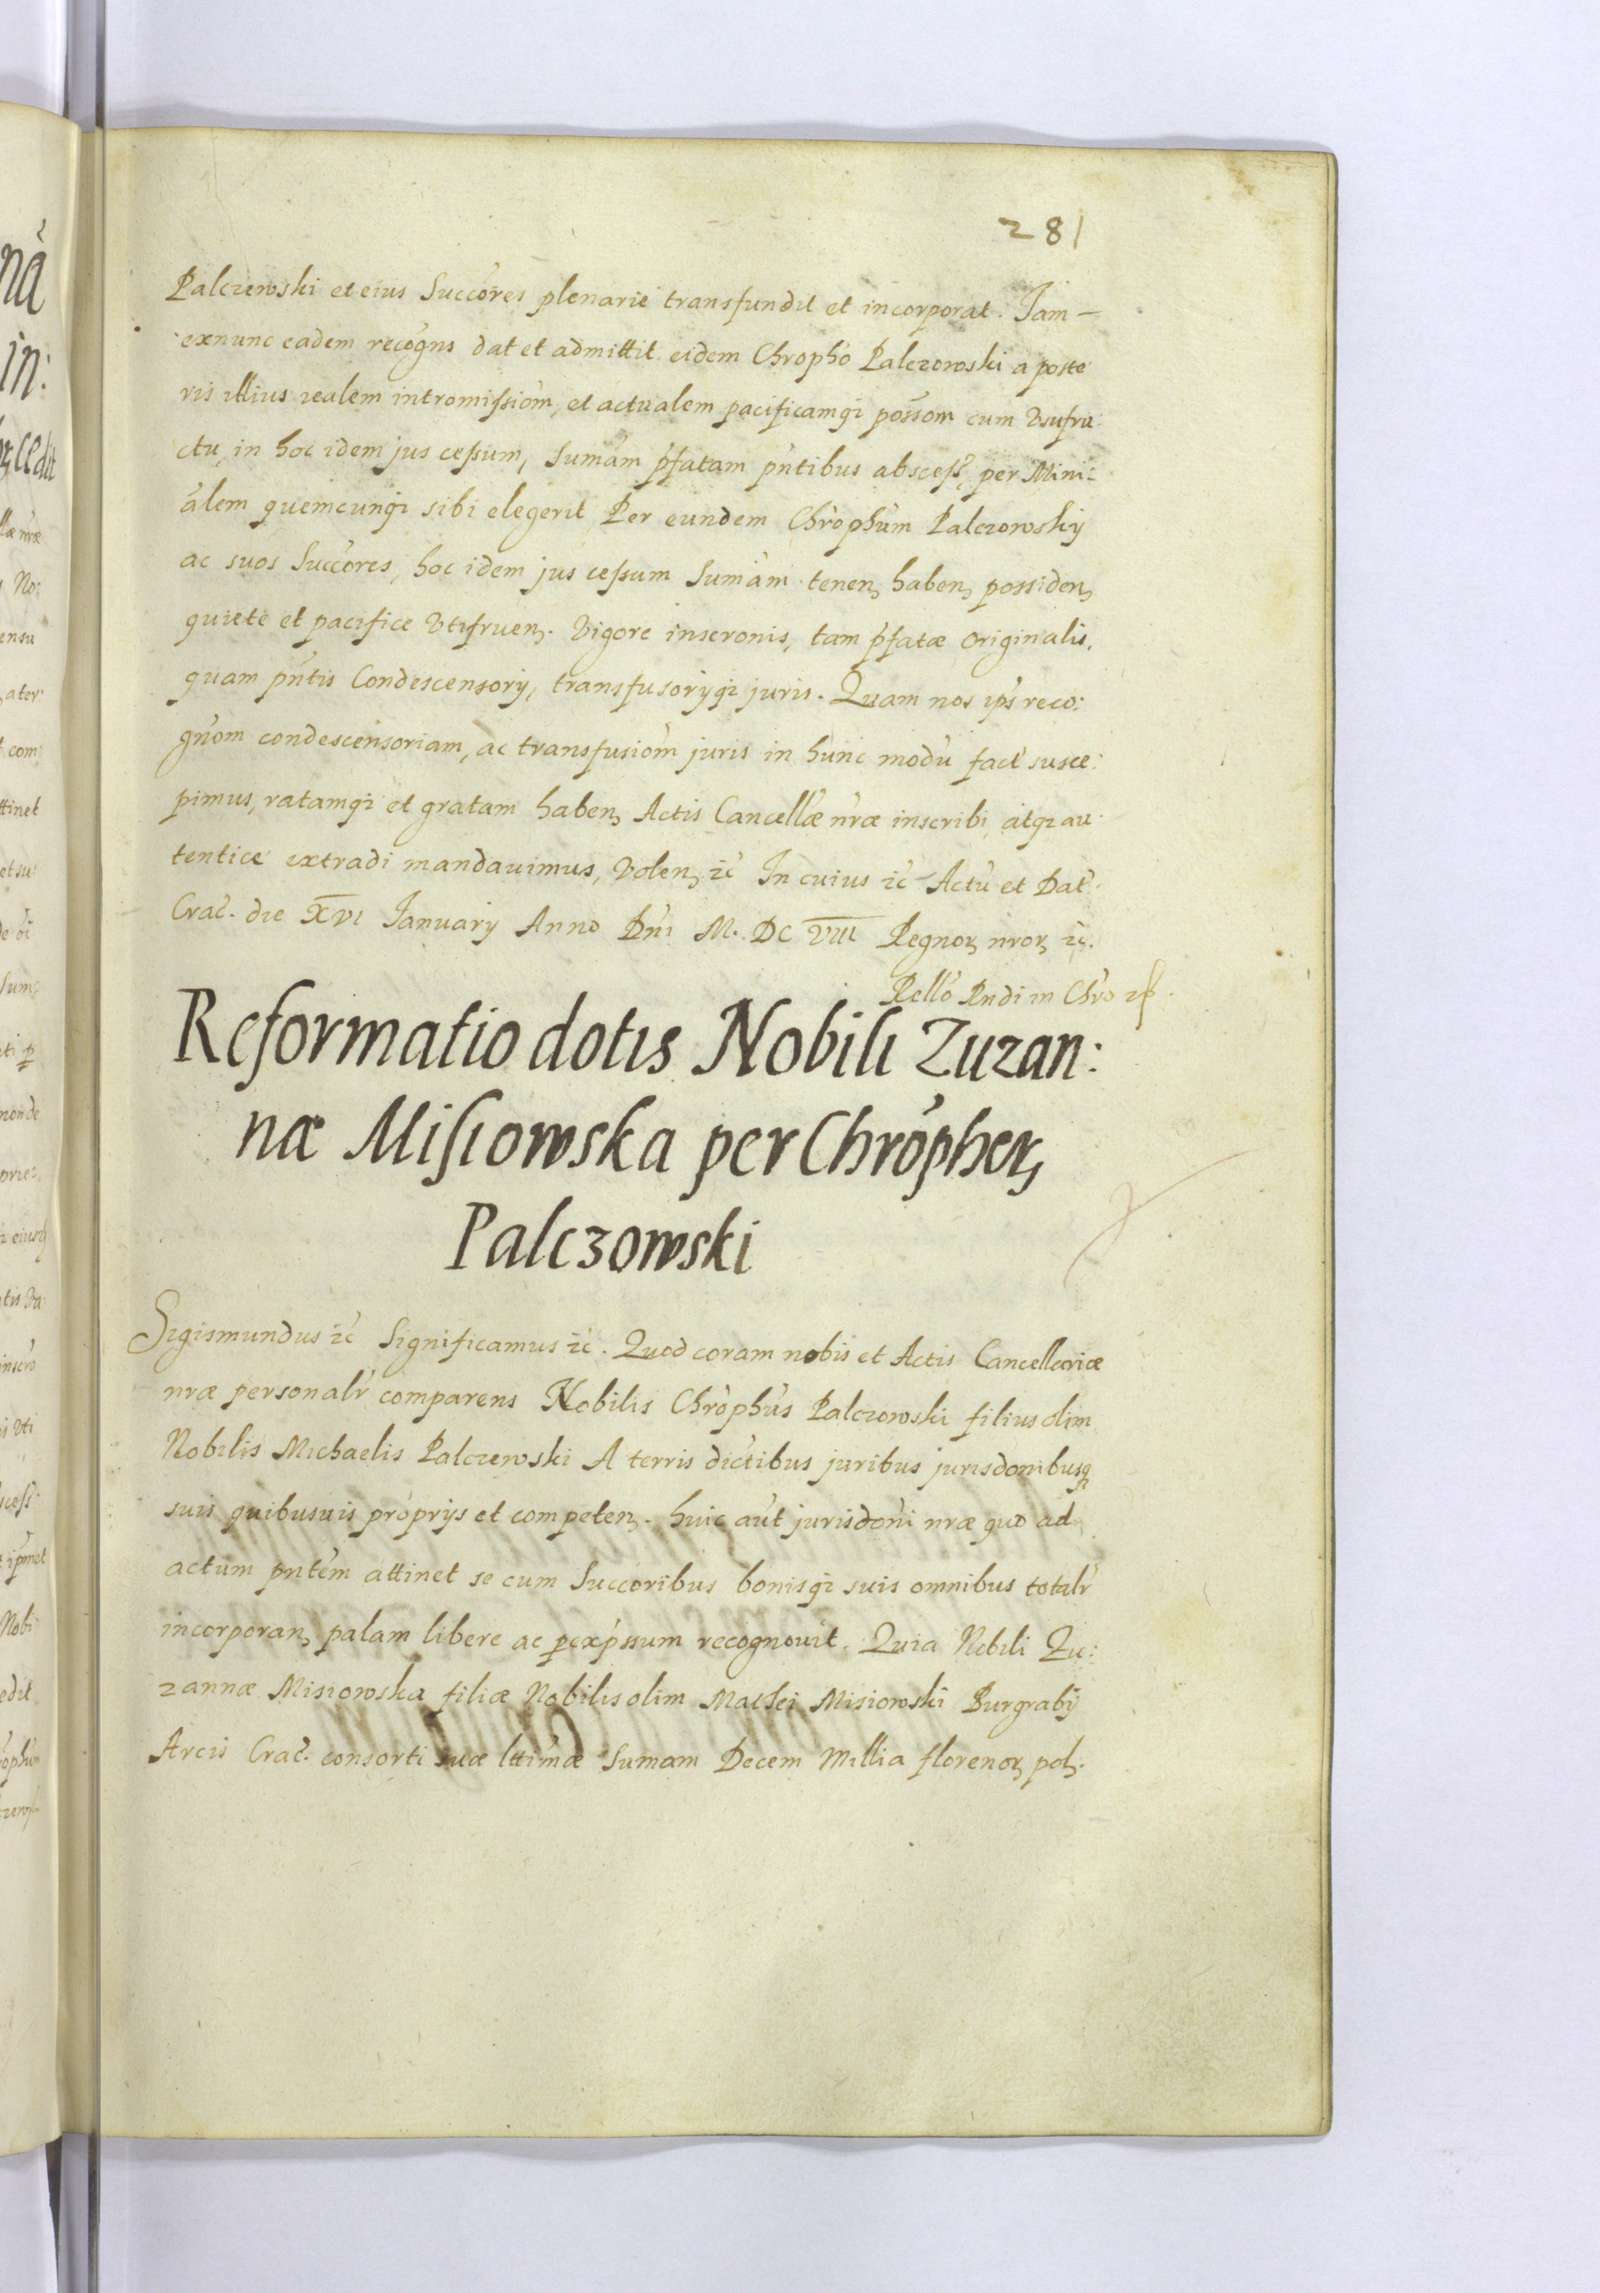 281
Palczewski et eius Succōres plenarie transfundit et incorporat. Jam
exnunc eadem recōgns dat et admittit eidem Chrōphō Palczowski a poste
ris illius realem intromissiom, et actualem pacificamqꝫ possōm cum Vsufru:
ctu, in hoc idem jus cessum, Sumām pfatam pn̄tibus abscess, per Mini:
ālem quemcunqꝫ sibi elegerit, Per eundem Chrōphūm Palczowsky
ac suos Succōres, hoc idem jus cessum Sumām tenenꝫ habenꝫ possidenꝫ
quiete et pacifice Vtifruenꝫ. Vigore inscronis, tam pfatæ originalis,
quam pn̄tis Condescensorÿ, transfusorÿqꝫ juris. Quam nos ips reco:
gnōm condescensoriam, ac transfusiōm juris in hunc modū fact susce:
pimus, ratamqꝫ et gratam habenꝫ Actis Cancellæ nr̄æ inscribi, atqꝫ au
tentice extradi mandauimus, Volenꝫ ꝛc̄ In cuius ꝛc̄ Actū et Dat̄.
Crac̄. die XVI Januarÿ Anno Dn̄i M. DC VIII Regnoꝝ nr̄oꝝ ꝛc̄.
Rell̄o Rn̄di in Chr̄o
Reformatio dotis Nobili Zuzan:
næ Misiowska per Chrōpheꝝ
Palczowski
Sigismundus ꝛc̄ Significamus ꝛc̄. Quod coram nobis et Actis Cancellæriæ
nr̄æ personalr̄ comparens Nobilis Chrōphūs Palczowski filius olim
Nobilis Michaelis Palczewski A terris dictibus juribus jurisdonibusqꝫ
suis quibusuis proprÿs et competenꝫ. huic aūt jurisdōni nr̄æ quo ad
actum pn̄tem attinet se cum Succoribus bonisqꝫ suis omnibus totalr̄
incorporanꝫ palam libere ac ꝑexpssum recognouit. Quia Nobili Zu:
zannæ Misiowska filiæ Nobilis olim Mathei Misiowski Burgrabÿ
Arcis Crac̄. consorti suæ lttimæ Sumam Decem Millia florenoꝝ polꝫ.